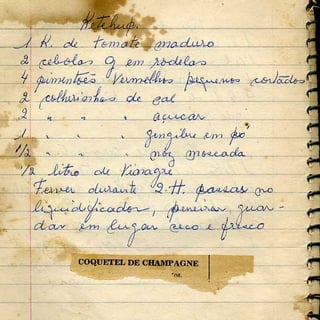 Ketchup
1 K. de tomate maduro
2 cebolas g em rodelas
4 pimentões vermelhos pequenos cortados
2 colherinhas de sal
2 " " " açucar
1 " " " gengibre em pó
1/2 " " noz moscada
1/2 litro de Vinagre
Ferver durante 2 H. passas no
liquidificador, peneirar guar-
dar em lugar seco e fresco
COQUETEL DE CHAMPAGNE